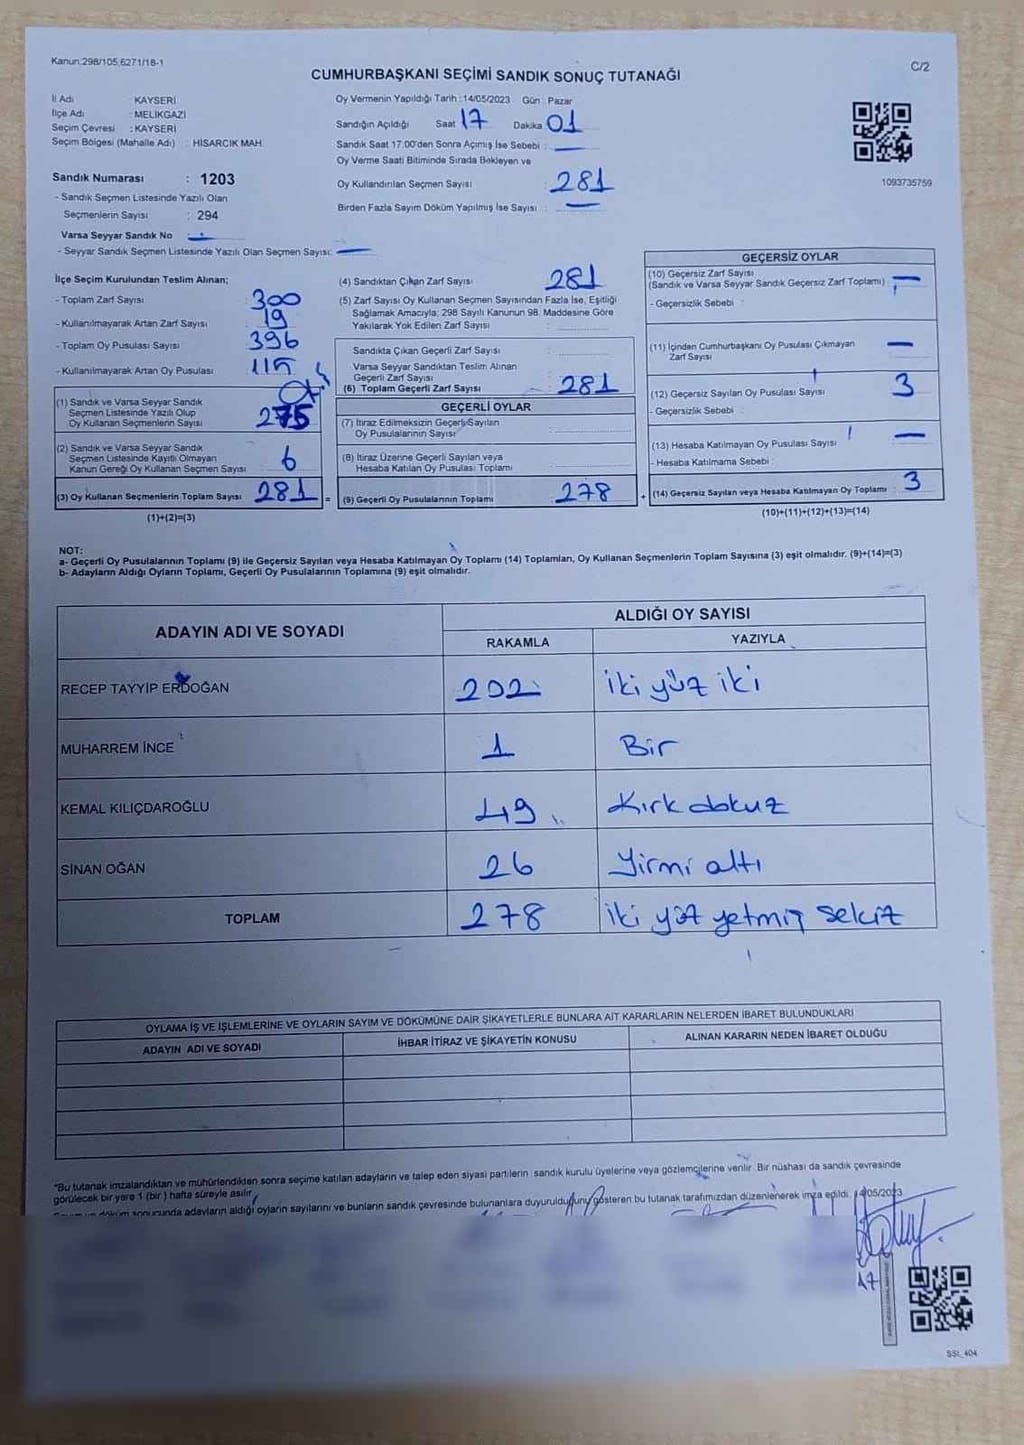 Kanun:298/105,6271/18-1
C/2
CUMHURBAŞKANI SEÇİMİ SANDIK SONUÇ TUTANAĞI
İl Adı : KAYSERİ
İlçe Adı : MELİKGAZİ
Seçim Çevresi : KAYSERİ
Seçim Bölgesi (Mahalle Adı) : HİSARCIK MAH.
Sandık Numarası : 1203
- Sandık Seçmen Listesinde Yazılı Olan
Seçmenlerin Sayısı : 294
Varsa Seyyar Sandık No : —
- Seyyar Sandık Seçmen Listesinde Yazılı Olan Seçmen Sayısı: —
Oy Vermenin Yapıldığı Tarih :14/05/2023 Gün : Pazar
Sandığın Açıldığı Saat 17 Dakika 01
Sandık Saat 17:00'den Sonra Açımış İse Sebebi : —
Oy Verme Saati Bitiminde Sırada Bekleyen ve
Oy Kullandırılan Seçmen Sayısı : 281
Birden Fazla Sayım Döküm Yapılmış İse Sayısı : —
1093735759
İlçe Seçim Kurulundan Teslim Alınan;
- Toplam Zarf Sayısı : 300
- Kullanılmayarak Artan Zarf Sayısı : 19
- Toplam Oy Pusulası Sayısı : 396
- Kullanılmayarak Artan Oy Pusulası : 115
(1) Sandık ve Varsa Seyyar Sandık
Seçmen Listesinde Yazılı Olup
Oy Kullanan Seçmenlerin Sayısı 275
(2) Sandık ve Varsa Seyyar Sandık
Seçmen Listesinde Kayıtlı Olmayan
Kanun Gereği Oy Kullanan Seçmen Sayısı 6
(3) Oy Kullanan Seçmenlerin Toplam Sayısı 281 =
(1)+(2)=(3)
(4) Sandıktan Çıkan Zarf Sayısı : 281
(5) Zarf Sayısı Oy Kullanan Seçmen Sayısından Fazla İse, Eşitliği
Sağlamak Amacıyla; 298 Sayılı Kanunun 98. Maddesine Göre
Yakılarak Yok Edilen Zarf Sayısı :
Sandıkta Çıkan Geçerli Zarf Sayısı :
Varsa Seyyar Sandıktan Teslim Alınan
Geçerli Zarf Sayısı :
(6) Toplam Geçerli Zarf Sayısı : 281
GEÇERLİ OYLAR
(7) İtiraz Edilmeksizin Geçerli Sayılan
Oy Pusulalarının Sayısı :
(8) İtiraz Üzerine Geçerli Sayılan veya
Hesaba Katılan Oy Pusulası Toplamı :
(9) Geçerli Oy Pusulalarının Toplamı : 278 +
GEÇERSİZ OYLAR
(10) Geçersiz Zarf Sayısı
(Sandık ve Varsa Seyyar Sandık Geçersiz Zarf Toplamı) : —
- Geçersizlik Sebebi :
(11) İçinden Cumhurbaşkanı Oy Pusulası Çıkmayan : —
Zarf Sayısı
(12) Geçersiz Sayılan Oy Pusulası Sayısı : 3
- Geçersizlik Sebebi :
(13) Hesaba Katılmayan Oy Pusulası Sayısı : —
- Hesaba Katılmama Sebebi :
(14) Geçersiz Sayılan veya Hesaba Katılmayan Oy Toplamı : 3
(10)+(11)+(12)+(13)=(14)
NOT:
a- Geçerli Oy Pusulalarının Toplamı (9) ile Geçersiz Sayılan veya Hesaba Katılmayan Oy Toplamı (14) Toplamları, Oy Kullanan Seçmenlerin Toplam Sayısına (3) eşit olmalıdır. (9)+(14)=(3)
b- Adayların Aldığı Oyların Toplamı, Geçerli Oy Pusulalarının Toplamına (9) eşit olmalıdır.
ADAYIN ADI VE SOYADI
ALDIĞI OY SAYISI
RAKAMLA YAZIYLA
RECEP TAYYİP ERDOĞAN 202 iki yüz iki
MUHARREM İNCE 1 Bir
KEMAL KILIÇDAROĞLU 49 Kırk dokuz
SİNAN OĞAN 26 Yirmi altı
TOPLAM 278 iki yüz yetmiş sekiz
OYLAMA İŞ VE İŞLEMLERİNE VE OYLARIN SAYIM VE DÖKÜMÜNE DAİR ŞİKAYETLERLE BUNLARA AİT KARARLARIN NELERDEN İBARET BULUNDUKLARI
ADAYIN ADI VE SOYADI
İHBAR İTİRAZ VE ŞİKAYETİN KONUSU
ALINAN KARARIN NEDEN İBARET OLDUĞU
"Bu tutanak imzalandıktan ve mühürlendikten sonra seçime katılan adayların ve talep eden siyasi partilerin sandık kurulu üyelerine veya gözlemcilerine verilir. Bir nüshası da sandık çevresinde
görülecek bir yere 1 (bir) hafta süreyle asılır.
döküm sonucunda adayların aldığı oyların sayılarını ve bunların sandık çevresinde bulunanlara duyurulduğunu gösteren bu tutanak tarafımızdan düzenlenerek imza edildi. 14/05/2023
17
SSI_404